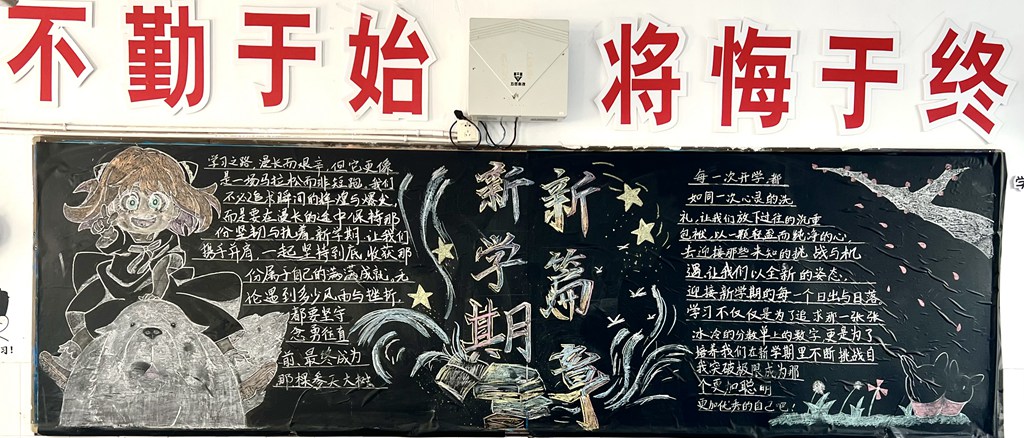 不勤于始
将悔于终
学习之路,漫长而艰辛,但它更像
是一场马拉松而非短跑,我们
不必追求瞬间的辉煌与爆发
而是要在漫长的途中保持那
份坚韧与执着,新学期,让我们
携手并肩,一起坚持到底,收获那
份属于自己的满满成就,无
论遇到多少风雨与挫折,
都要坚守
念勇往直
前,最终成为
那棵参天大树
新学期
新篇章
每一次开学,都
如同一次心灵的洗
礼,让我们放下过往的沉重
包袱,以一颗轻盈而纯净的心
去迎接那些未知的挑战与机
遇,让我们以全新的姿态,
迎接新学期的每一个日出与日落
学习不仅仅是为了追求那一张张
冰冷的分数单上的数字,更是为了
培养我们在新学期里不断挑战自
我突破极限成为那
个更加聪明
更加优秀的自己吧!
学
习!